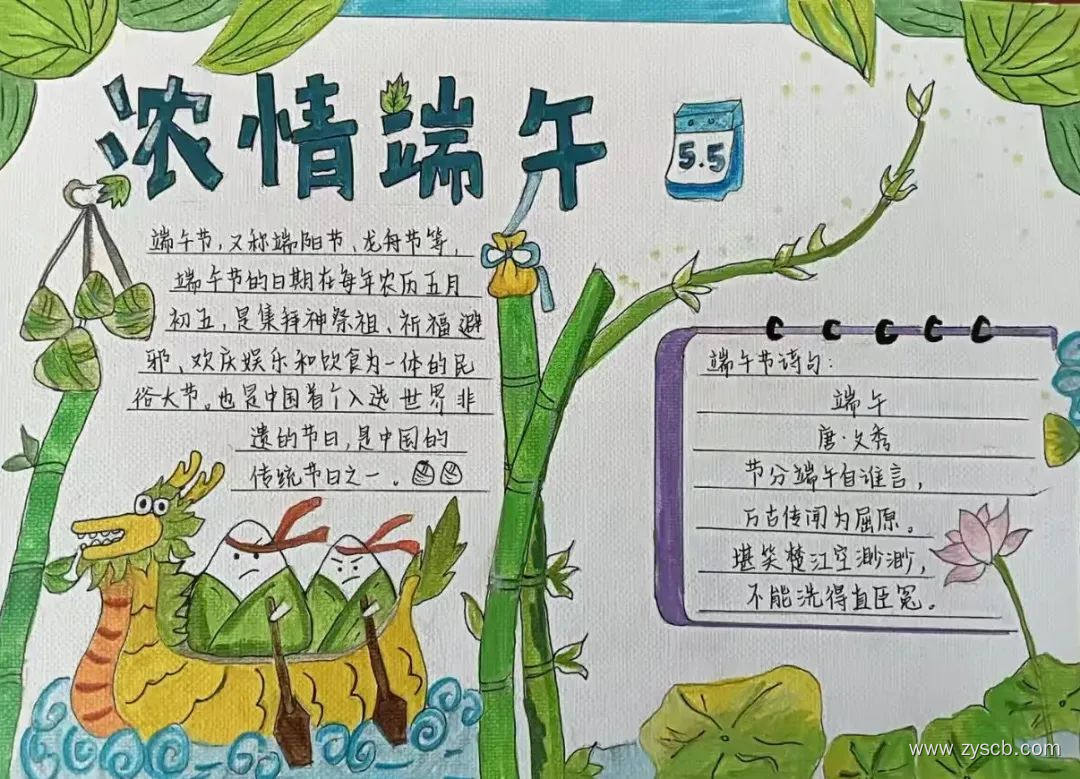 浓情端午
5.5
端午节,又称端阳节、龙舟节等,
端午节的日期在每年农历五月
初五,是集拜神祭祖、祈福避
邪、欢庆娱乐和饮食为一体的民
俗大节。也是中国首个入选世界非
遗的节日,是中国的
传统节日之一。
端午节诗句:
端午
唐·文秀
节分端午自谁言,
万古传闻为屈原。
堪笑楚江空渺渺,
不能洗得直臣冤。
www.zyscb.com